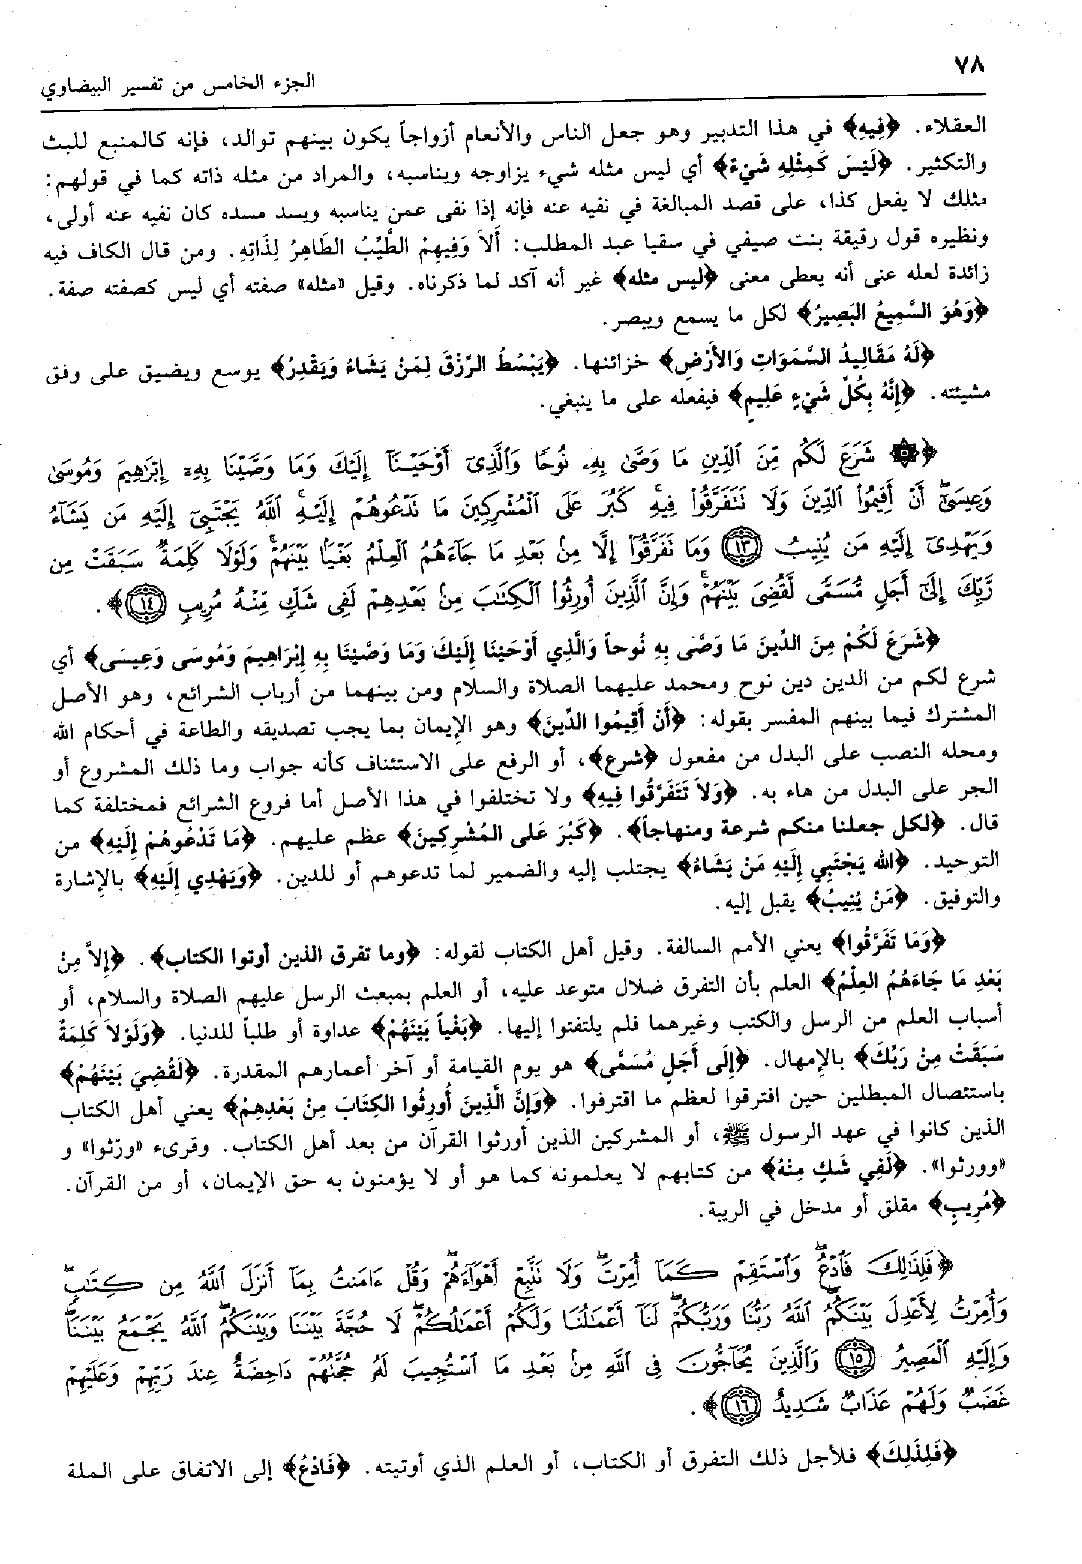 ٧٨
الجزء الخامس من تفسير البيضاوي
العقلاء. ﴿فِيهِ﴾ في هذا التدبير وهو جعل الناس والأنعام أزواجاً يكون بينهم توالد، فإنه كالمنبع للبث
والتكثير. ﴿لَيْسَ كَمِثْلِهِ شَيْءٌ﴾ أي ليس مثله شيء يزاوجه ويناسبه، والمراد من مثله ذاته كما في قولهم:
مثلك لا يفعل كذا، على قصد المبالغة في نفيه عنه فإنه إذا نفى عمن يناسبه ويسد مسده كان نفيه عنه أولى،
ونظيره قول رقيقة بنت صيفي في سقيا عبد المطلب: أَلاَ وَفِيهِمْ الطَّيِّبُ الطَاهِرُ لِذَاتِهِ. ومن قال الكاف فيه
زائدة لعله عنى أنه يعطى معنى ﴿ليس مثله﴾ غير أنه آكد لما ذكرناه. وقيل «مثله» صفته أي ليس كصفته صفة.
﴿وَهُوَ السَّمِيعُ البَصِيرُ﴾ لكل ما يسمع ويبصر.
﴿لَهُ مَقَالِيدُ السَّمَوَاتِ وَالأَرْضِ﴾ خزائنها. ﴿يَبْسُطُ الرِّزْقَ لِمَنْ يَشَاءُ وَيَقْدِرُ﴾ يوسع ويضيق على وفق
مشيئته. ﴿إِنَّهُ بِكُلِّ شَيْءٍ عَلِيمٍ﴾ فيفعله على ما ينبغي.
﴿۞ شَرَعَ لَكُم مِّنَ ٱلدِّينِ مَا وَصَّىٰ بِهِۦ نُوحًا وَٱلَّذِىٓ أَوْحَيْنَآ إِلَيْكَ وَمَا وَصَّيْنَا بِهِۦٓ إِبْرَٰهِيمَ وَمُوسَىٰ
وَعِيسَىٰٓ أَنْ أَقِيمُوا۟ ٱلدِّينَ وَلَا تَتَفَرَّقُوا۟ فِيهِ كَبُرَ عَلَى ٱلْمُشْرِكِينَ مَا تَدْعُوهُمْ إِلَيْهِ ٱللَّهُ يَجْتَبِىٓ إِلَيْهِ مَن يَشَآءُ
وَيَهْدِىٓ إِلَيْهِ مَن يُنِيبُ ﴿١٣﴾ وَمَا تَفَرَّقُوٓا۟ إِلَّا مِنۢ بَعْدِ مَا جَآءَهُمُ ٱلْعِلْمُ بَغْيًۢا بَيْنَهُمْ وَلَوْلَا كَلِمَةٌ سَبَقَتْ مِن
رَّبِّكَ إِلَىٰٓ أَجَلٍ مُّسَمًّى لَّقُضِىَ بَيْنَهُمْ وَإِنَّ ٱلَّذِينَ أُورِثُوا۟ ٱلْكِتَٰبَ مِنۢ بَعْدِهِمْ لَفِى شَكٍّ مِّنْهُ مُرِيبٍ ﴿١٤﴾﴾.
﴿شَرَعَ لَكُمْ مِنَ الدِّينَ مَا وَصَّى بِهِ نُوحاً وَالَّذِي أَوْحَيْنَا إِلَيْكَ وَمَا وَصَّيْنَا بِهِ إِبْرَاهِيمَ وَمُوسَى وَعِيسَى﴾ أي
شرع لكم من الدين دين نوح ومحمد عليهما الصلاة والسلام ومن بينهما من أرباب الشرائع، وهو الأصل
المشترك فيما بينهم المفسر بقوله: ﴿أَنْ أَقِيمُوا الدِّينَ﴾ وهو الإِيمان بما يجب تصديقه والطاعة في أحكام الله
ومحله النصب على البدل من مفعول ﴿شرع﴾، أو الرفع على الاستئناف كأنه جواب وما ذلك المشروع أو
الجر على البدل من هاء به. ﴿وَلاَ تَتَفَرَّقُوا فِيهِ﴾ ولا تختلفوا في هذا الأصل أما فروع الشرائع فمختلفة كما
قال. ﴿لكل جعلنا منكم شرعة ومنهاجاً﴾. ﴿كَبُرَ عَلى المُشْرِكِينَ﴾ عظم عليهم. ﴿مَا تَدْعُوهُمْ إِلَيْهِ﴾ من
التوحيد. ﴿الله يَجْتَبِي إِلَيْهِ مَنْ يَشَاءُ﴾ يجتلب إليه والضمير لما تدعوهم أو للدين. ﴿وَيَهْدِي إِلَيْهِ﴾ بالإِشارة
والتوفيق. ﴿مَنْ يُنِيبُ﴾ يقبل إليه.
﴿وَمَا تَفَرَّقُوا﴾ يعني الأمم السالفة. وقيل أهل الكتاب لقوله: ﴿وما تفرق الذين أوتوا الكتاب﴾. ﴿إِلاَّ مِنْ
بَعْدِ مَا جَاءَهُمُ العِلْمُ﴾ العلم بأن التفرق ضلال متوعد عليه، أو العلم بمبعث الرسل عليهم الصلاة والسلام، أو
أسباب العلم من الرسل والكتب وغيرهما فلم يلتفتوا إليها. ﴿بَغْياً بَيْنَهُمْ﴾ عداوة أو طلباً للدنيا. ﴿وَلَوْلاَ كَلِمَةٌ
سَبَقَتْ مِنْ رَبِّكَ﴾ بالإِمهال. ﴿إِلَى أَجَلٍ مُسَمَّى﴾ هو يوم القيامة أو آخر أعمارهم المقدرة. ﴿لَقُضِيَ بَيْنَهُمْ﴾
باستئصال المبطلين حين افترقوا لعظم ما اقترفوا. ﴿وَإِنَّ الَّذِينَ أُورِثُوا الكِتَابَ مِنْ بَعْدِهِمْ﴾ يعني أهل الكتاب
الذين كانوا في عهد الرسول ﷺ، أو المشركين الذين أورثوا القرآن من بعد أهل الكتاب. وقرىء «ورّثوا» و
«وورثوا». ﴿لَفِي شَكٍ مِنْهُ﴾ من كتابهم لا يعلمونه كما هو أو لا يؤمنون به حق الإِيمان، أو من القرآن.
﴿مُرِيبٍ﴾ مقلق أو مدخل في الريبة.
﴿فَلِذَٰلِكَ فَٱدْعُ وَٱسْتَقِمْ كَمَآ أُمِرْتَ وَلَا تَتَّبِعْ أَهْوَآءَهُمْ وَقُلْ ءَامَنتُ بِمَآ أَنزَلَ ٱللَّهُ مِن كِتَٰبٍ
وَأُمِرْتُ لِأَعْدِلَ بَيْنَكُمُ ٱللَّهُ رَبُّنَا وَرَبُّكُمْ لَنَآ أَعْمَٰلُنَا وَلَكُمْ أَعْمَٰلُكُمْ لَا حُجَّةَ بَيْنَنَا وَبَيْنَكُمُ ٱللَّهُ يَجْمَعُ بَيْنَنَا
وَإِلَيْهِ ٱلْمَصِيرُ ﴿١٥﴾ وَٱلَّذِينَ يُحَآجُّونَ فِى ٱللَّهِ مِنۢ بَعْدِ مَا ٱسْتُجِيبَ لَهُۥ حُجَّتُهُمْ دَاحِضَةٌ عِندَ رَبِّهِمْ وَعَلَيْهِمْ
غَضَبٌ وَلَهُمْ عَذَابٌ شَدِيدٌ ﴿١٦﴾﴾.
﴿فَلِذَلِكَ﴾ فلأجل ذلك التفرق أو الكتاب، أو العلم الذي أوتيته. ﴿فَادْعُ﴾ إلى الاتفاق على الملة